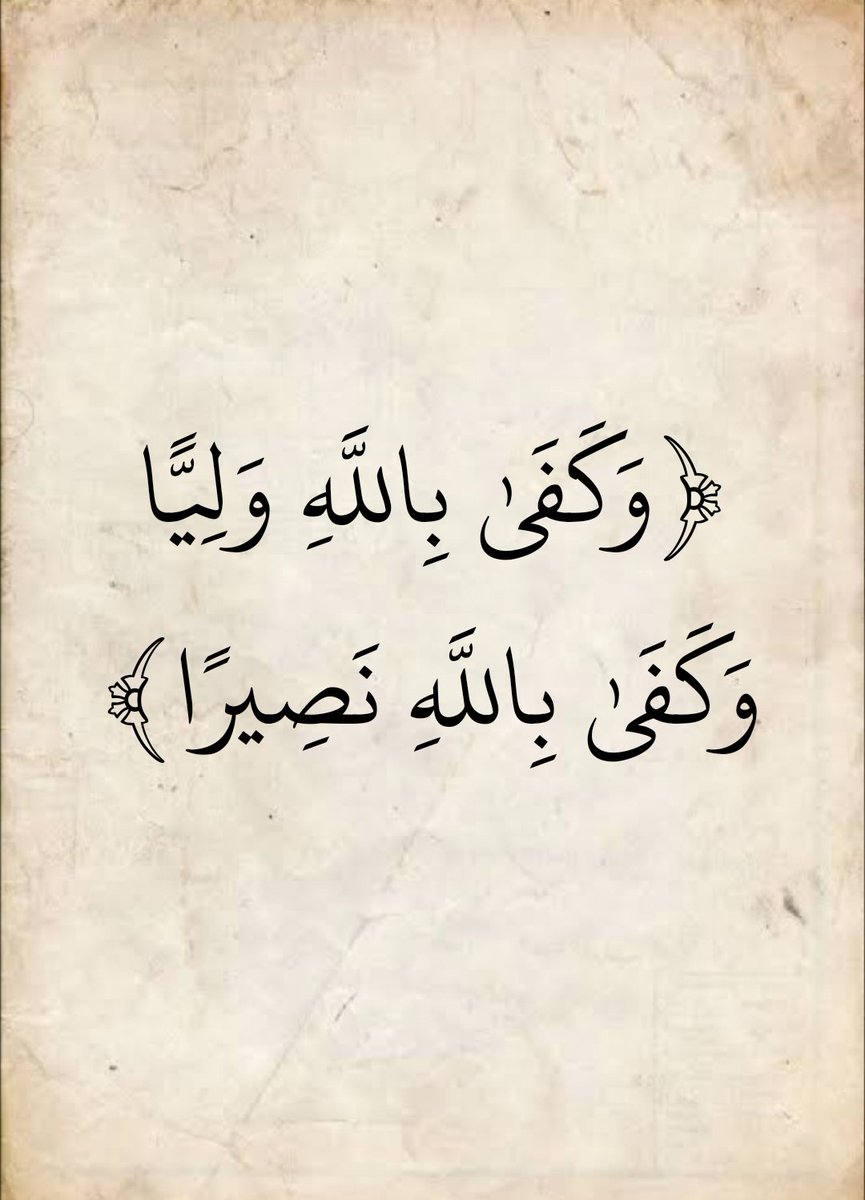 ﴿وَكَفَىٰ بِاللَّهِ وَلِيًّا
وَكَفَىٰ بِاللَّهِ نَصِيرًا﴾